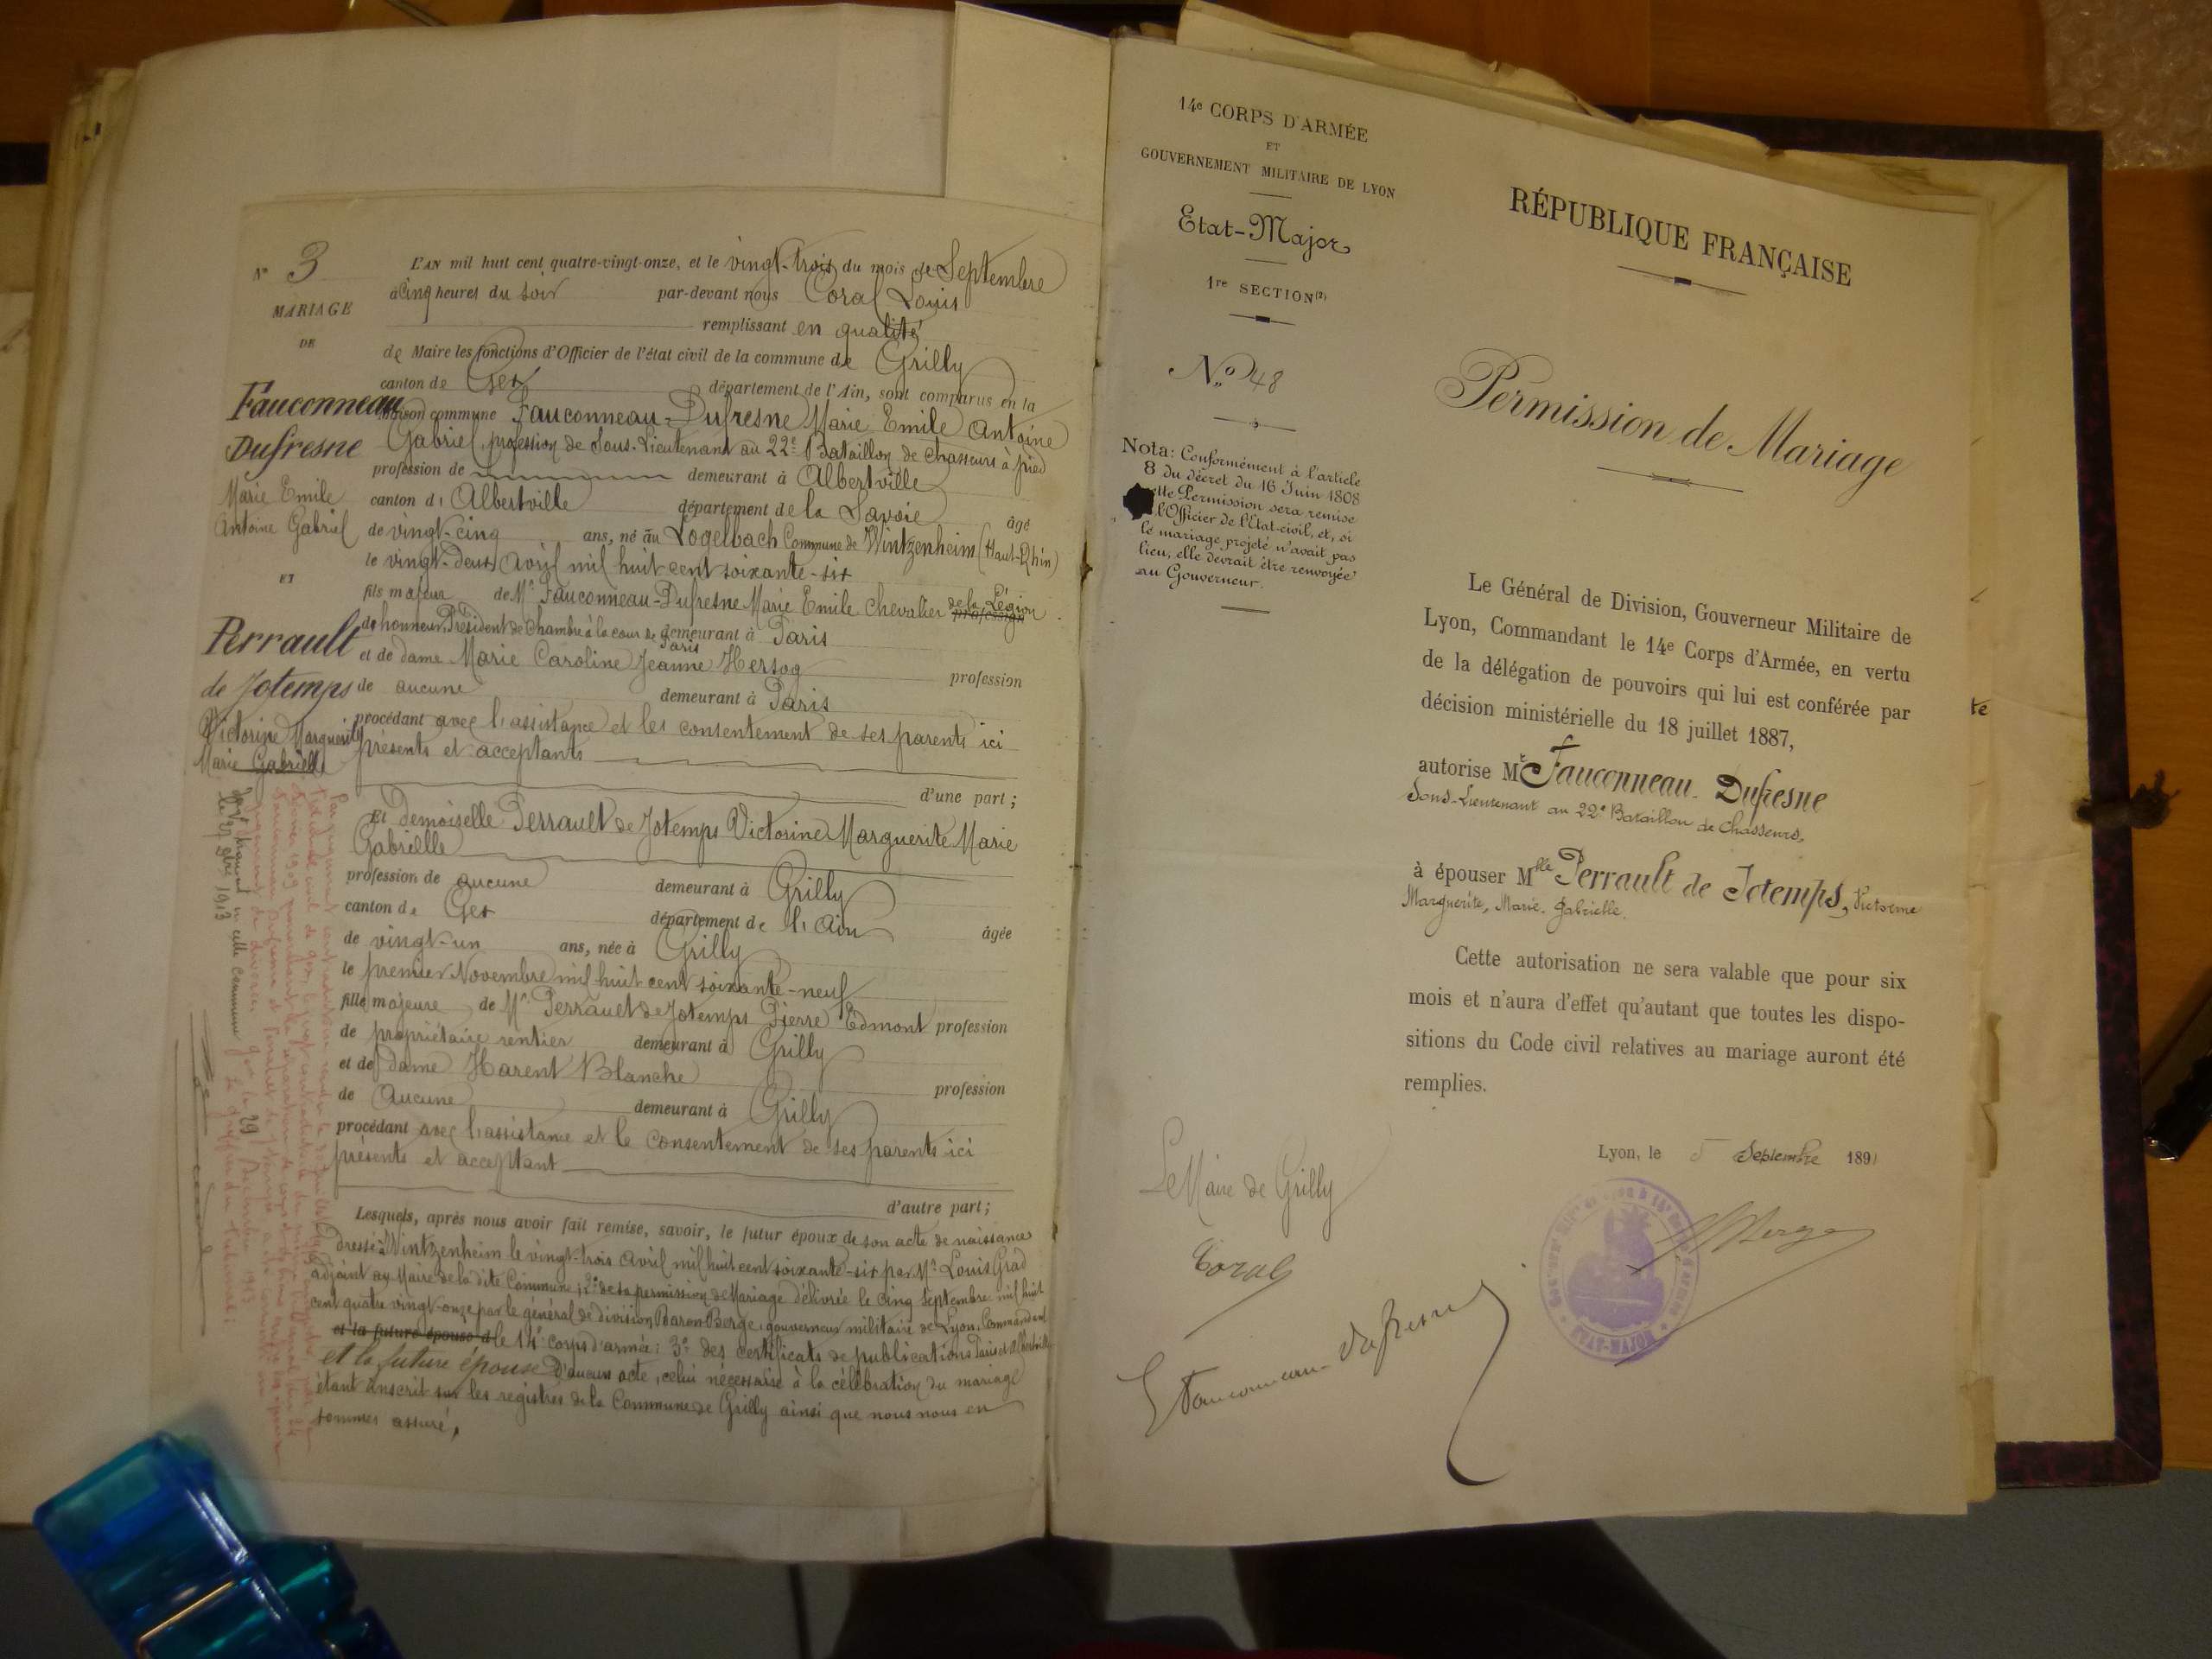 N° 3
MARIAGE
DE
Fauconneau
Dufresne
Marie Emile
Antoine Gabriel
ET
Perrault
de Jotemps
Victorine Marguerite
Marie Gabrielle
L'AN mil huit cent quatre-vingt-onze, et le vingt-trois du mois de Septembre
à Cinq heures du soir par-devant nous Coral Louis
remplissant en qualité
de Maire les fonctions d'Officier de l'état civil de la commune de Grilly
canton de Gex département de l'Ain, sont comparus en la
maison commune Fauconneau-Dufresne Marie Emile Antoine
Gabriel, profession de Sous-Lieutenant au 22e Bataillon de chasseurs à pied
profession de demeurant à Albertville
canton d' Albertville département de la Savoie âgé
de vingt-cinq ans, né au Logelbach Commune de Wintzenheim (Haut-Rhin)
le vingt-deux avril mil huit cent soixante-six
fils majeur de Mr Fauconneau-Dufresne Marie Emile Chevalier de la Légion
profession
d'honneur, Président de Chambre à la cour de Paris demeurant à Paris
et de dame Marie Caroline Jeanne Herzog profession
de aucune demeurant à Paris
procédant avec l'assistance et les consentement de ses parents ici
présents et acceptants
d'une part ;
Et Demoiselle Perrault de Jotemps Victorine Marguerite Marie
Gabrielle
profession de aucune demeurant à Grilly
canton de Gex département de l'Ain âgée
de vingt-un ans, née à Grilly
le premier Novembre mil huit cent soixante-neuf
fille majeure de Mr Perrault de Jotemps Pierre Edmont profession
de propriétaire rentier demeurant à Grilly
et de dame Harent Blanche profession
de Aucune demeurant à Grilly
procédant avec l'assistance et le consentement de ses parents ici
présents et acceptant
d'autre part ;
Lesquels, après nous avoir fait remise, savoir, le futur époux de son acte de naissance
dressé à Wintzenheim le vingt-trois avril mil huit cent soixante-six par Mr Louis Grad
adjoint au Maire de la dite Commune ; 2° de sa permission de Mariage délivrée le cinq Septembre mil huit
cent quatre vingt-onze par le général de division Baron Berge, gouverneur militaire de Lyon, Commandant
et la future épouse d le 14e corps d'armée ; 3° des certificats de publications Paris et Albertville
et la future épouse D'aucun acte, celui nécessaire à la célébration du mariage
étant inscrit sur les registres de la Commune de Grilly ainsi que nous nous en
sommes assuré,
14e CORPS D'ARMÉE
ET
GOUVERNEMENT MILITAIRE DE LYON
Etat-Major
1re SECTION (2)
No 48
Nota: Conformément à l'article
8 du décret du 16 Juin 1808
cette Permission sera remise
l'Officier de l'Etat-civil, et, si
le mariage projeté n'avait pas
lieu, elle devrait être renvoyée
au Gouverneur.
RÉPUBLIQUE FRANÇAISE
Permission de Mariage
Le Général de Division, Gouverneur Militaire de
Lyon, Commandant le 14e Corps d'Armée, en vertu
de la délégation de pouvoirs qui lui est conférée par
décision ministérielle du 18 juillet 1887,
autorise Mr Fauconneau-Dufresne
Sous-Lieutenant au 22e Bataillon de Chasseurs,
à épouser Mlle Perrault de Jotemps, Victorine
Marguerite, Marie, Gabrielle.
Cette autorisation ne sera valable que pour six
mois et n'aura d'effet qu'autant que toutes les dispo-
sitions du Code civil relatives au mariage auront été
remplies.
Lyon, le 5 Septembre 1891
Berge
Le Maire de Grilly
Coral
Fauconneau-Dufresne
te